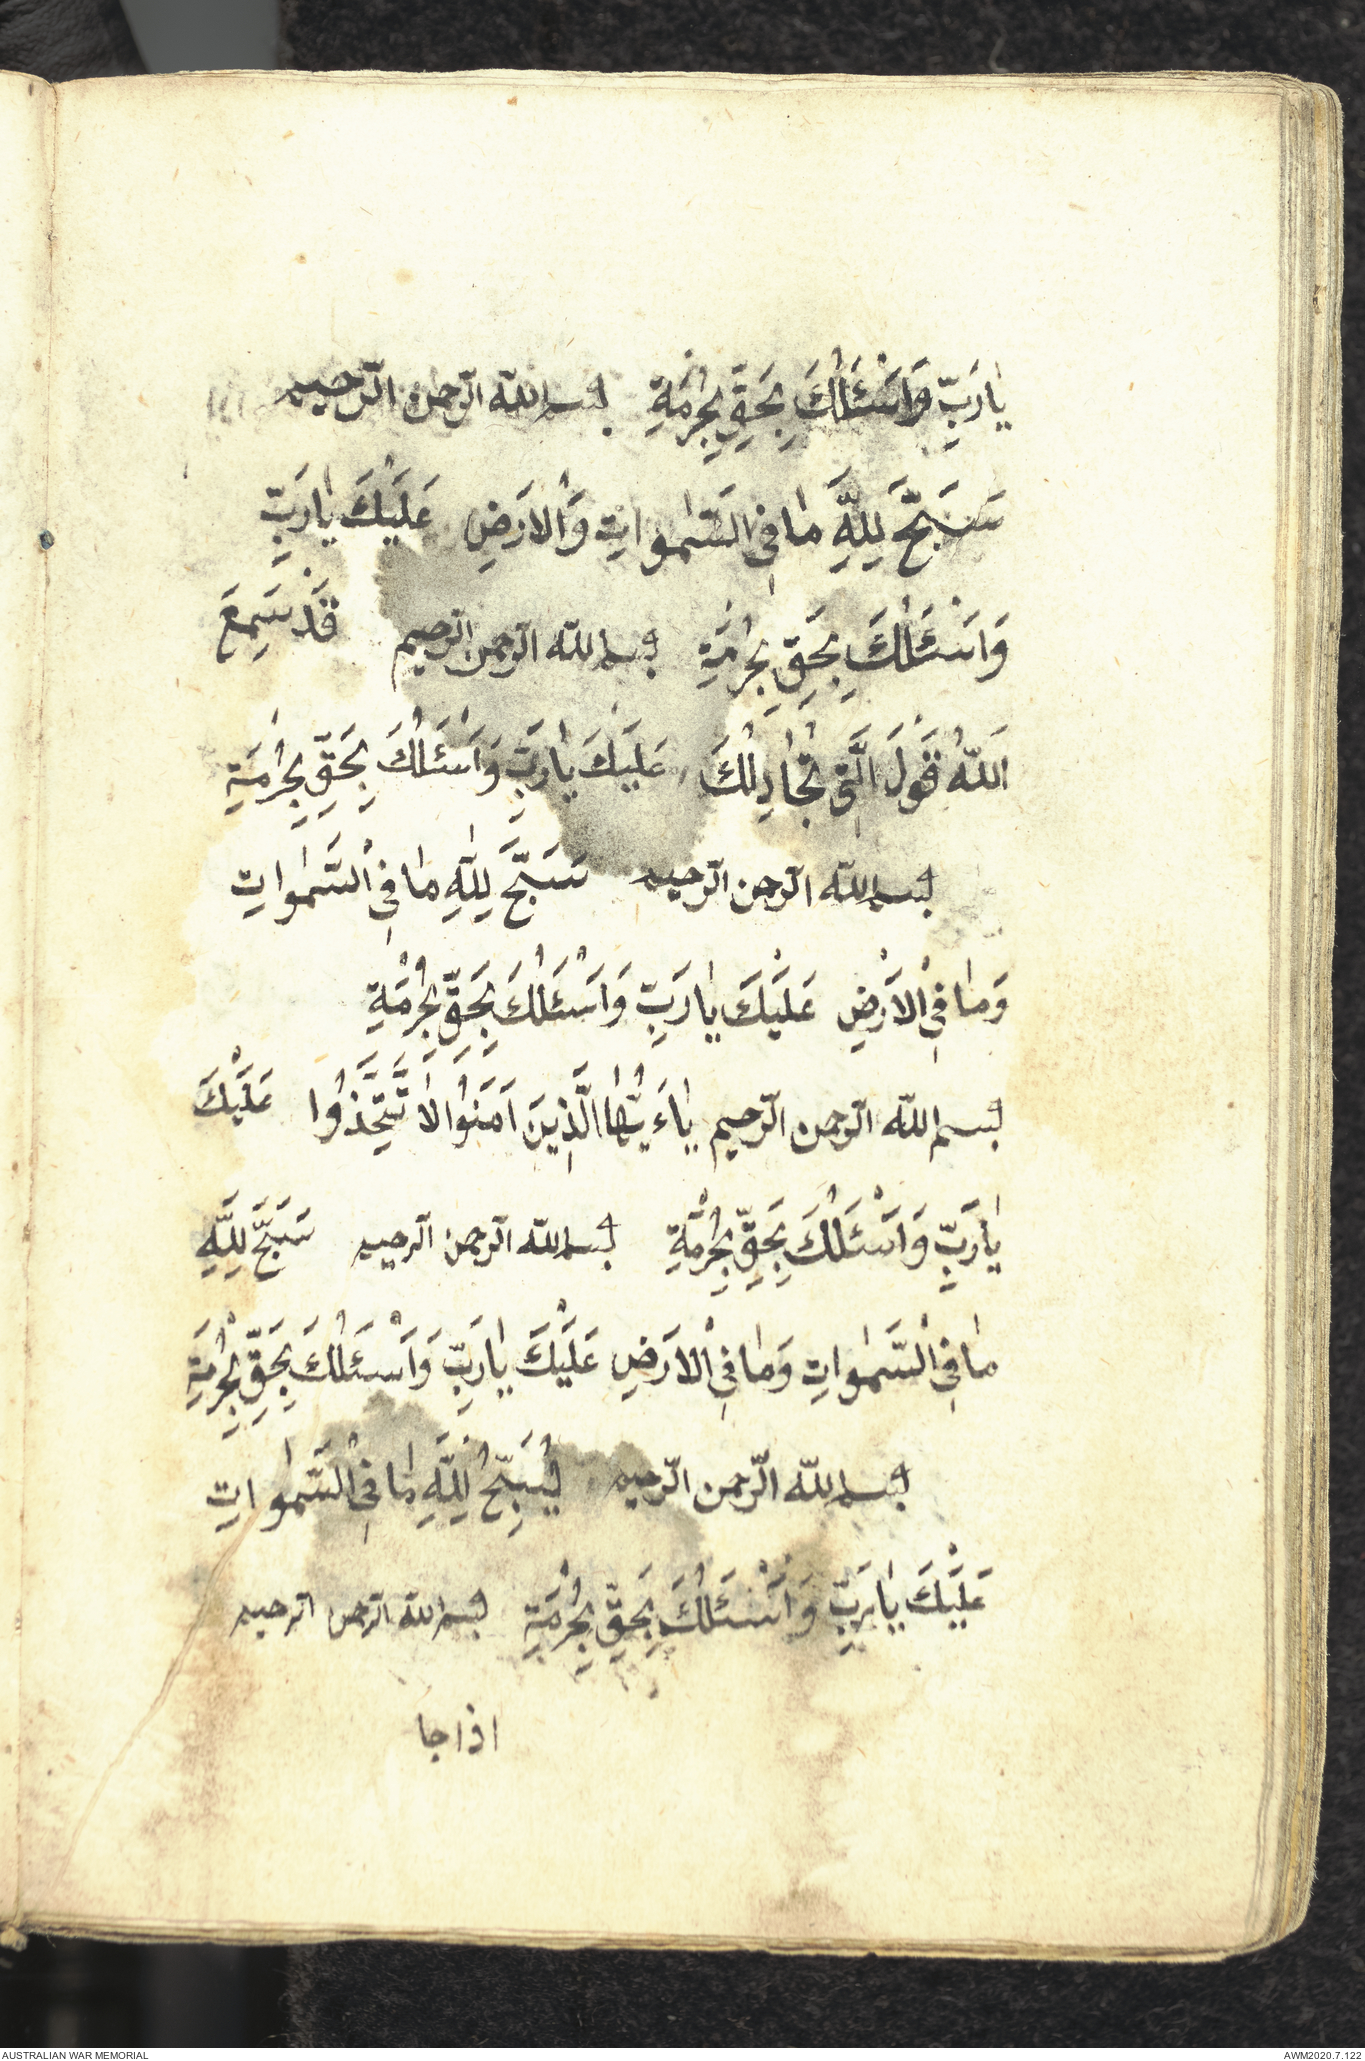 يَارَبِّ وَاَسْئَلُكَ بِحَقِّ بِحُرْمَةِ بسم الله الرحمن الرحيم
سَبَّحَ لِلّٰهِ مَا فِى السَّمٰوَاتِ وَالْاَرْضِ عَلَيْكَ يَارَبِّ
وَاَسْئَلُكَ بِحَقِّ بِحُرْمَةِ بسم الله الرحمن الرحيم قَدْ سَمِعَ
اَللّٰهُ قَوْلَ الَّتِى تُجَادِلُكَ عَلَيْكَ يَارَبِّ وَاَسْئَلُكَ بِحَقِّ بِحُرْمَةِ
بسم الله الرحمن الرحيم سَبَّحَ لِلّٰهِ مَا فِى السَّمٰوَاتِ
وَمَا فِى الْاَرْضِ عَلَيْكَ يَارَبِّ وَاَسْئَلُكَ بِحَقِّ بِحُرْمَةِ
بسم الله الرحمن الرحيم يَاءَيُّهَا الَّذِينَ اَمَنُوا لَا تَتَّخِذُوا عَلَيْكَ
يَارَبِّ وَاَسْئَلُكَ بِحَقِّ بِحُرْمَةِ بسم الله الرحمن الرحيم سَبَّحَ لِلّٰهِ
مَا فِى السَّمٰوَاتِ وَمَا فِى الْاَرْضِ عَلَيْكَ يَارَبِّ وَاَسْئَلُكَ بِحَقِّ بِحُرْمَةِ
بسم الله الرحمن الرحيم يُسَبِّحُ لِلّٰهِ مَا فِى السَّمٰوَاتِ
عَلَيْكَ يَارَبِّ وَاَسْئَلُكَ بِحَقِّ بِحُرْمَةِ بسم الله الرحمن الرحيم
اذا جا
AUSTRALIAN WAR MEMORIAL AWM2020.7.122